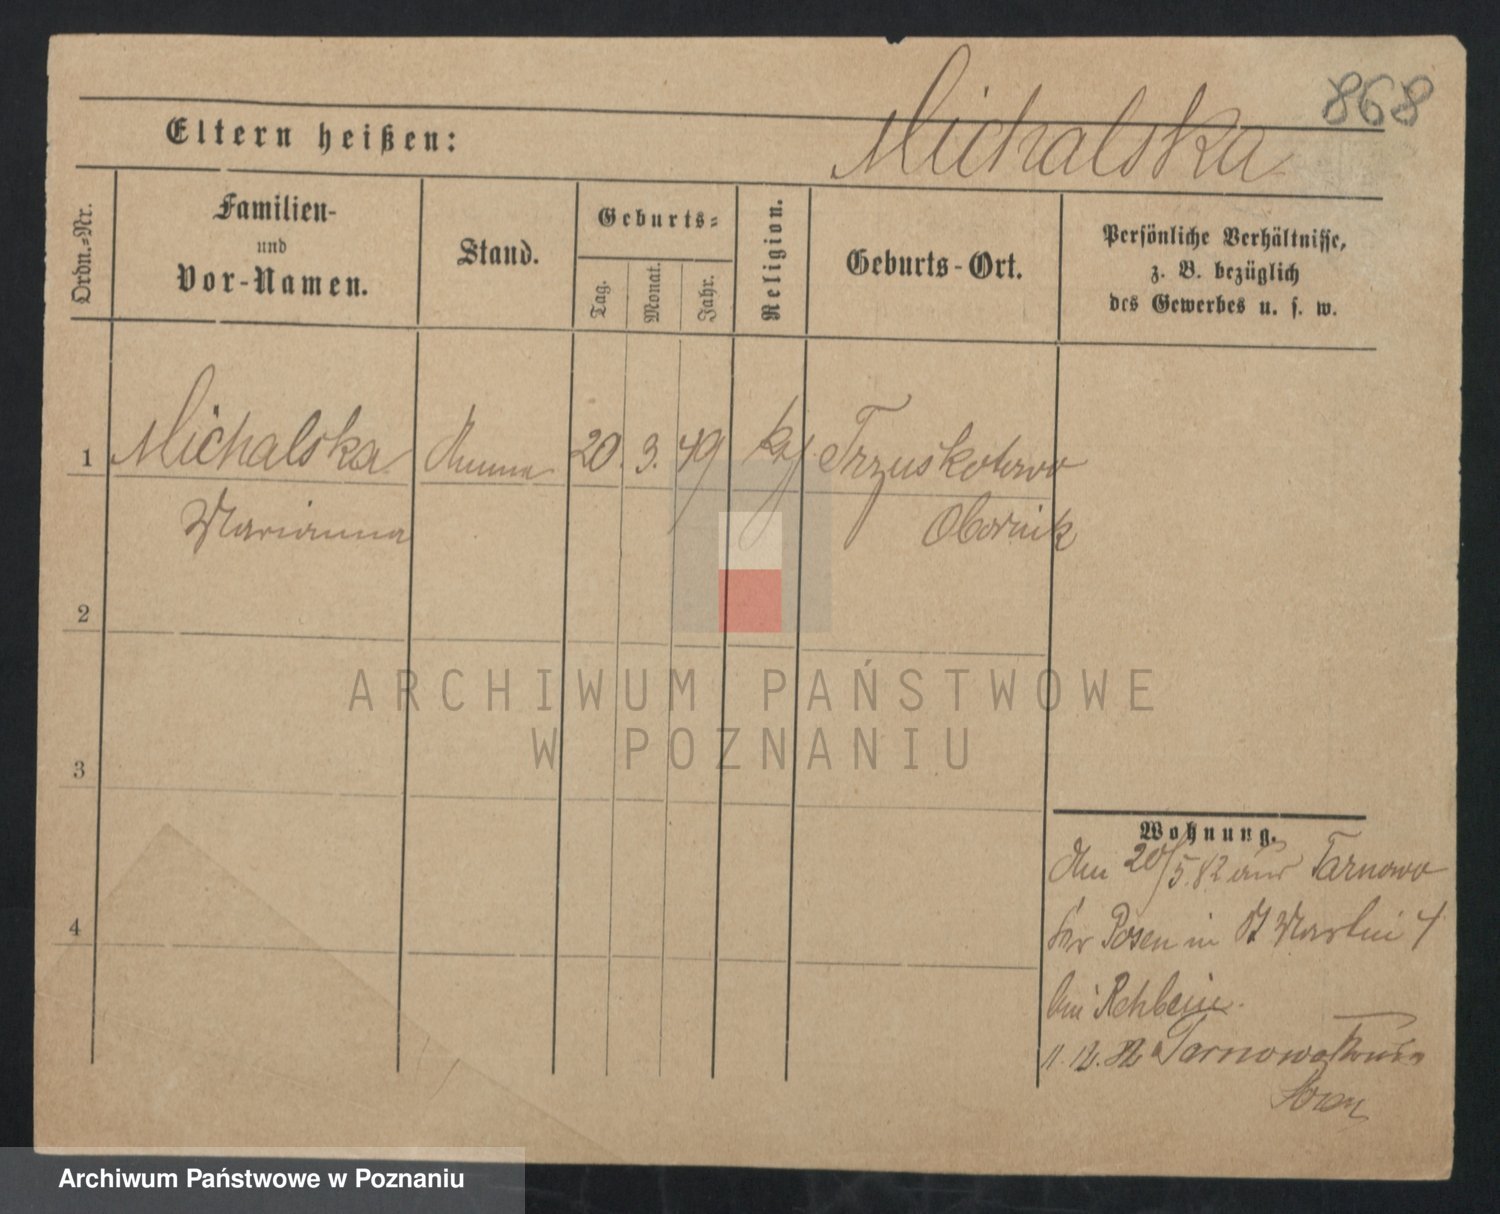 868
Michalska
Eltern heißen:
Ordn.=Nr.
Familien-
und
Vor-Namen.
Stand.
Geburts=
Tag.
Monat.
Jahr.
Religion.
Geburts-Ort.
Persönliche Verhältnisse,
z. B. bezüglich
des Gewerbes u. s. w.
1 Michalska Amme 20. 3. 49 Trzuskotowo
Marianna Obornik
2
ARCHIWUM PAŃSTWOWE
W POZNANIU
3
4
Wohnung.
Am 20/5.82 aus Tarnowo
Kr Posen in St Martin 4
bei Rehbein.
11.12.82 Tarnowo Kreis
Posen
Archiwum Państwowe w Poznaniu